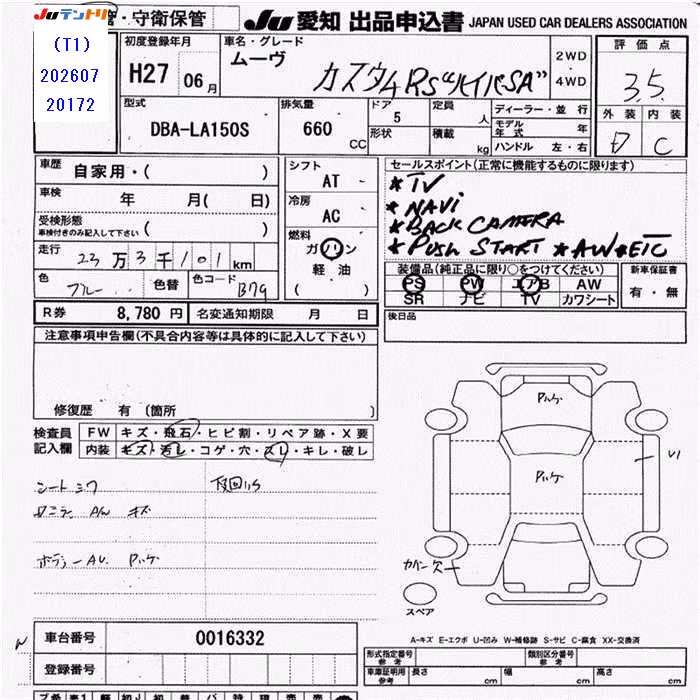 Juテントリ 管・守衛保管
JU 愛知 出品申込書 JAPAN USED CAR DEALERS ASSOCIATION
(T1)
202607
20172
初度登録年月
H27 06月
車名・グレード
ムーヴ
カスタム RS"ハイパーSA"
2WD
・
4WD
評価点
3.5
外装 内装
D C
型式
DBA-LA150S
排気量
660 CC
ドア
5
形状
定員 人
積載 kg
ディーラー・並行
モデル年式 年
ハンドル 左・右
車歴 自家用・( )
車検 年 月( 日)
受検形態
車検付きのみ記入して下さい ( )
走行 23万3千101km
色 ブルー 色替 色コード B79
シフト
AT
冷房
AC
燃料
ガソリン
軽油
( )
セールスポイント(正常に機能するものに限ります)
★TV
★NAVI
★BACK CAMERA
★PUSH START ★AW★ETC
装備品(純正品に限り○をつけてください)
PS PW エアB AW
SR ナビ TV カワシート
新車保証書
有・無
R券 8,780円 名変通知期限 月 日
後日品
注意事項申告欄(不具合内容等は具体的に記入して下さい)
修復歴 有(箇所 )
検査員記入欄
FW キズ・飛石・ヒビ割・リペア跡・X要
内装 キズ・汚レ・コゲ・穴・スレ・キレ・破レ
シートシワ 下回リS
キズ
ボデーAU
カバー欠
スペア
U1
A-キズ E-エクボ U-凹み W-補修跡 S-サビ C-腐食 XX-交換済
車台番号 0016332
登録番号
形式指定番号 参考
類別区分番号 参考
車庫証明用 参考 長さ cm 幅 cm 高さ cm